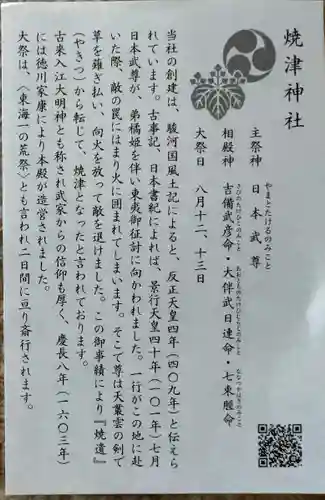 焼津神社
主祭神　日本武尊
やまとたけるのみこと
相殿神　吉備武彦命・大伴武日連命・七束脛命
きびのたけひこのみこと　おおとものたけひむらじのみこと　ななつかはぎのみこと
大祭日　八月十二、十三日
当社の創建は、駿河国風土記によると、反正天皇四年(四〇九年)と伝えら
れています。古事記、日本書紀によれば、景行天皇四十年(一〇一年)七月
日本武尊が、弟橘姫を伴い東夷御征討に向かわれました。一行がこの地に赴
いた際、敵の罠にはまり火に囲まれてしまいます。そこで尊は天叢雲の剣で
草を薙ぎ払い、向火を放って敵を退けました。この御事績により『焼遺』
(やきつ)から転じて、焼津となったと言われております。
古来入江大明神とも称され武家からの信仰も厚く、慶長八年(一六〇三年)
には徳川家康により本殿が造営されました。
大祭は、〈東海一の荒祭〉とも言われ二日間に亘り斎行されます。